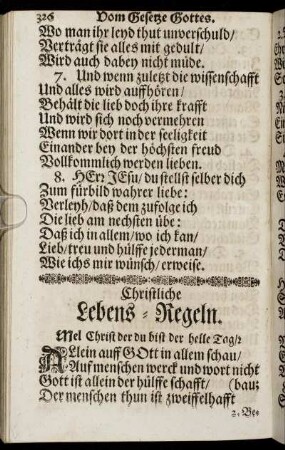 326 Vom Gesetze Gottes.
Wo man ihr leyd thut unverschuld/
Verträgt sie alles mit gedult/
Wird auch dabey nicht müde.
7. Und wenn zuletzt die wissenschafft
Und alles wird auffhören/
Behält die lieb doch ihre krafft
Und wird sich noch vermehren
Wenn wir dort in der seeligkeit
Einander bey der höchsten freud
Vollkommlich werden lieben.
8. HErr JEsu/ du stellst selber dich
Zum fürbild wahrer liebe:
Verleyh/ daß dem zufolge ich
Die lieb am nechsten übe:
Daß ich in allem/ wo ich kan/
Lieb/ treu und hülffe jederman/
Wie ichs mir wünsch/ erweise.
Christliche
Lebens-Regeln.
Mel Christ der du bist der helle Tag/2
ALlein auff GOtt in allem schau/
Auf menschen werck und wort nicht
Gott ist allein der hülffe schafft/ (bau;
Der menschen thun ist zweiffelhafft
2. Be-